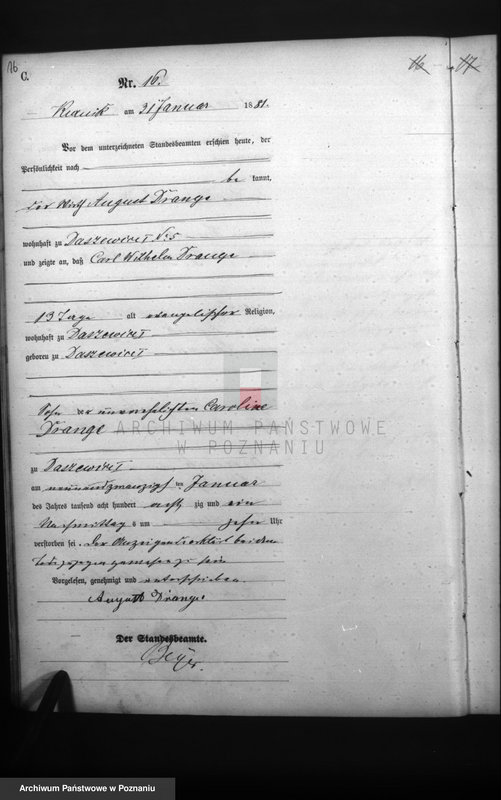 16
C.
16 - 17
Nr. 16.
Kranik am 31 Januar 1881.
Vor dem unterzeichneten Standesbeamten erschien heute, der
Persönlichkeit nach
be kannt,
der Wirth August Drange
wohnhaft zu Daszewice No 5
und zeigte an, daß Carl Wilhelm Drange
13 Tage alt evangelischer Religion,
wohnhaft zu Daszewice
geboren zu Daszewice
Sohn der unverehelichten Caroline
Drange
ARCHIWUM PAŃSTWOWE
W POZNANIU
zu Daszewice
am neunundzwanzigsten Januar
des Jahres tausend acht hundert acht zig und ein
Nachmittags um zehn Uhr
verstorben sei. Der Anzeigende erklärt bei dem
Tode zugegen gewesen zu sein
Vorgelesen, genehmigt und unterschrieben.
August Drange
Der Standesbeamte.
Beyer.
Archiwum Państwowe w Poznaniu